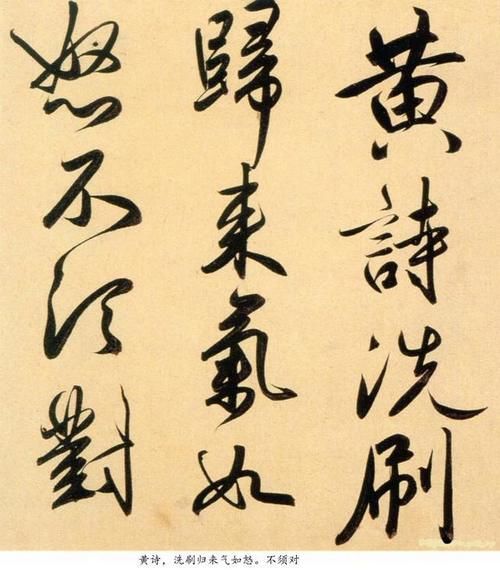 黄詩洗刷
歸来氣如
怒不須對
黄诗，洗刷归来气如怒。不须对